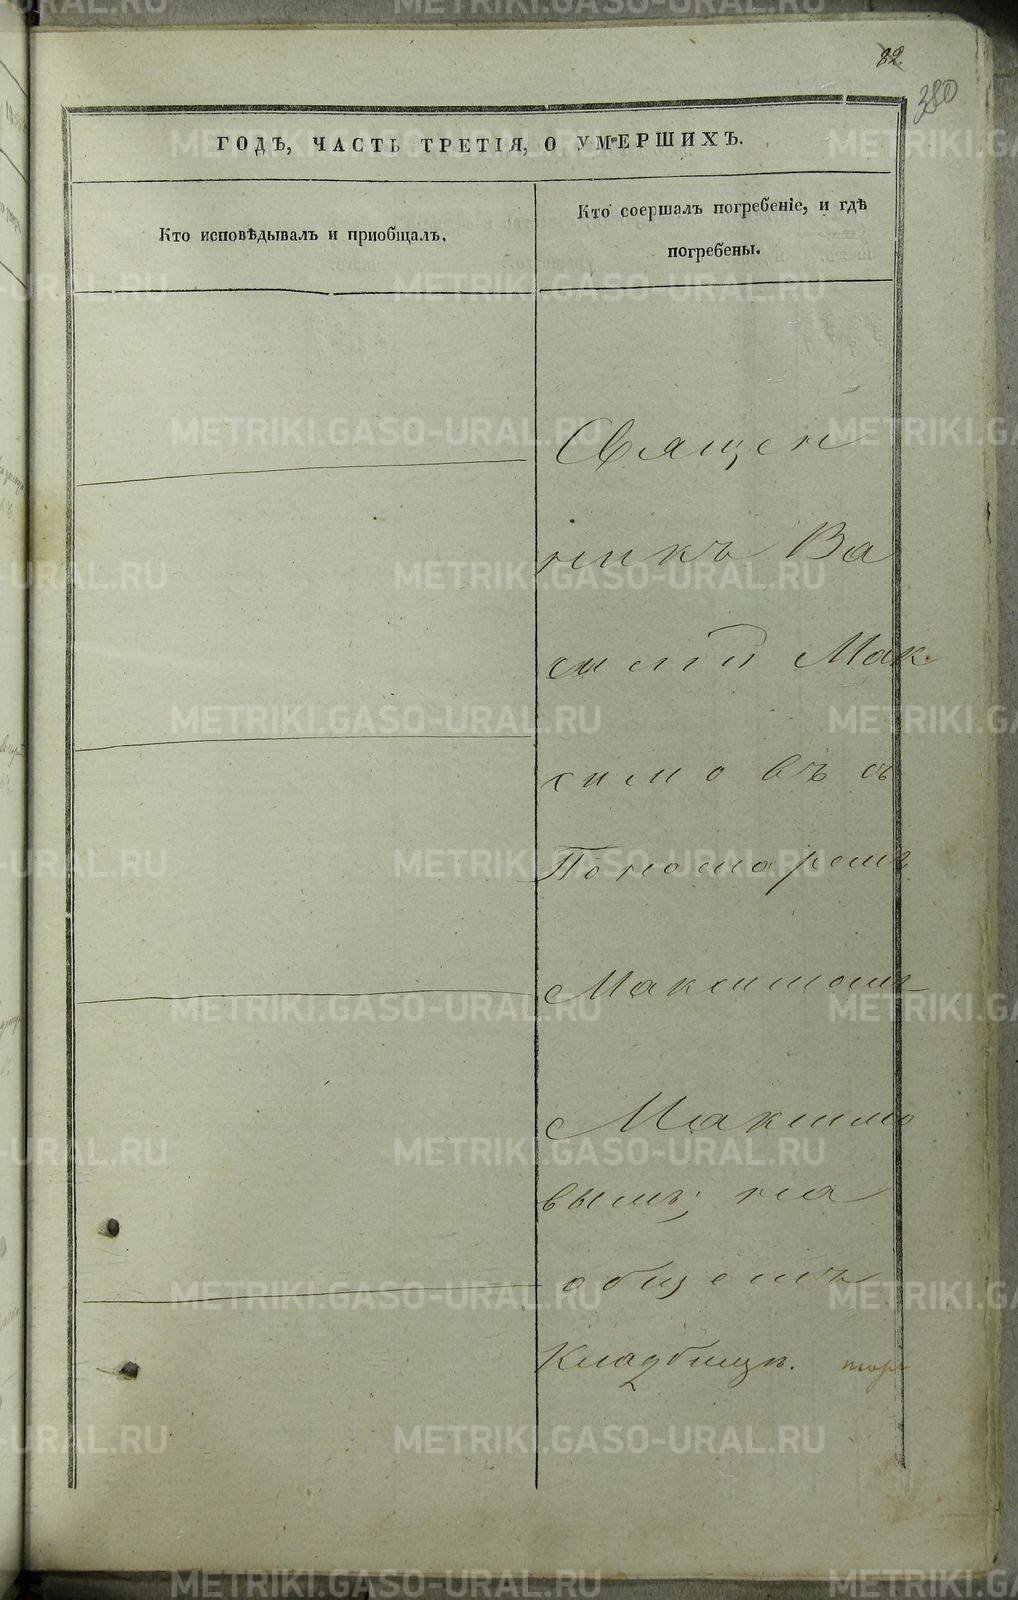 82.
380
ГОДЪ, ЧАСТЬ ТРЕТІЯ, О УМЕРШИХЪ.
Кто исповѣдывалъ и приобщалъ.
Кто соершалъ погребеніе, и гдѣ
погребены.
Священ
никъ Ва
силій Мак
симовъ съ
Пономаремъ
Максимомъ
Максимо
вымъ; на
общемъ
Кладбищѣ.
METRIKI.GASO-URAL.RU